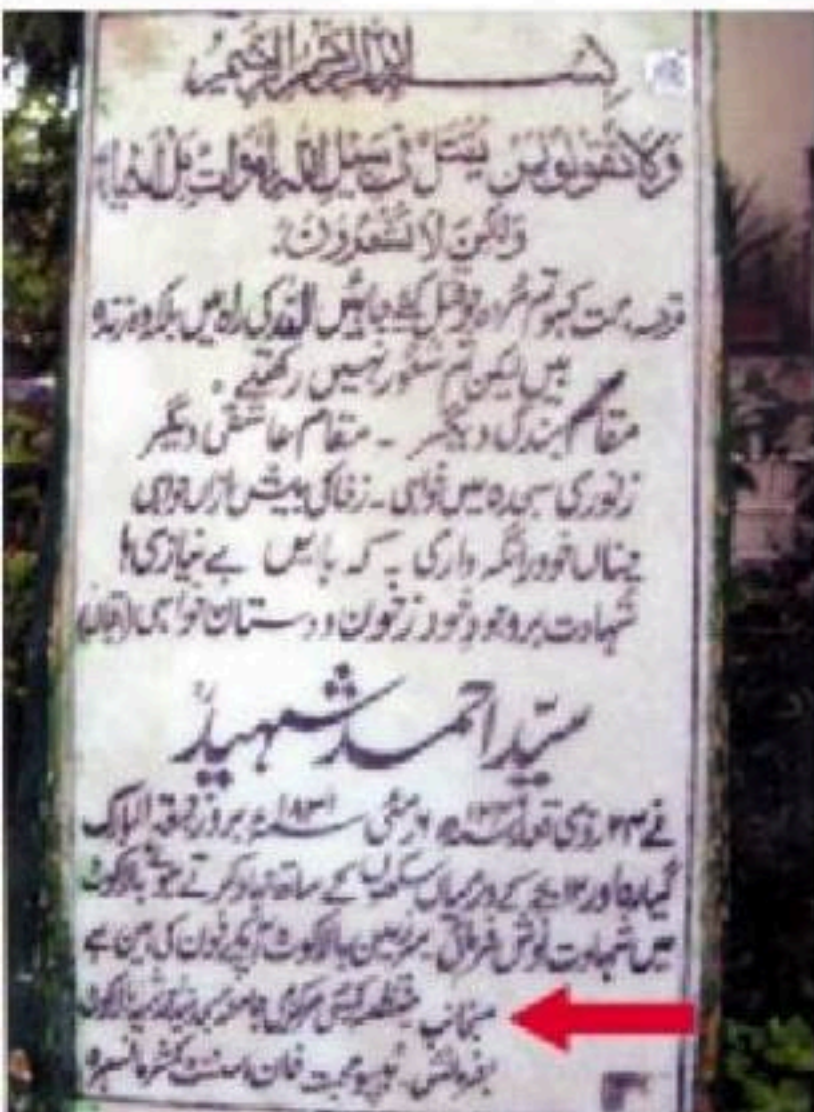 بسم اللہ الرحمن الرحیم
وَلَا تَقُولُوا لِمَن يُقْتَلُ فِي سَبِيلِ اللَّهِ أَمْوَاتٌ بَلْ أَحْيَاءٌ
وَلَٰكِن لَّا تَشْعُرُونَ
مت کہو تم مردہ جو قتل کیے جائیں اللہ کی راہ میں بلکہ وہ زندہ
ہیں لیکن تم شعور نہیں رکھتے۔
مقام بندگی دیگر ۔ مقام عاشقی دیگر
زنوری سجدہ میں خواہی ۔ زخاکی بیش ازاں خواہی
چناں خودرا نگہ داری کہ بایں بے نیازی ہا
شہادت بر وجود خود ز خون دوستان خواہی (اقبال)
سید احمد شہید
نے ۲۴ ذی قعد مئی ۱۸۳۱ بروز جمعۃ المبارک
گیارہ اور ۱۲ بجے کے درمیان سکھوں کے ساتھ جہاد کرتے ہوئے بالاکوٹ
میں شہادت نوش فرمائی سرزمین بالاکوٹ آپکے خون کی امین ہے
منجانب کمیٹی مرکزی جامع مسجد بالاکوٹ
خان اسسٹنٹ کمشنر مانسہرہ